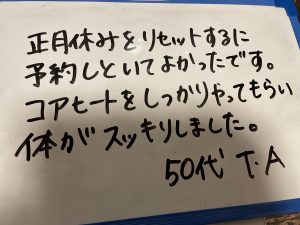 正月休みをリセットするに
予約しといてよかったです。
コアヒートをしっかりやってもらい
体がスッキリしました。
50代 T・A